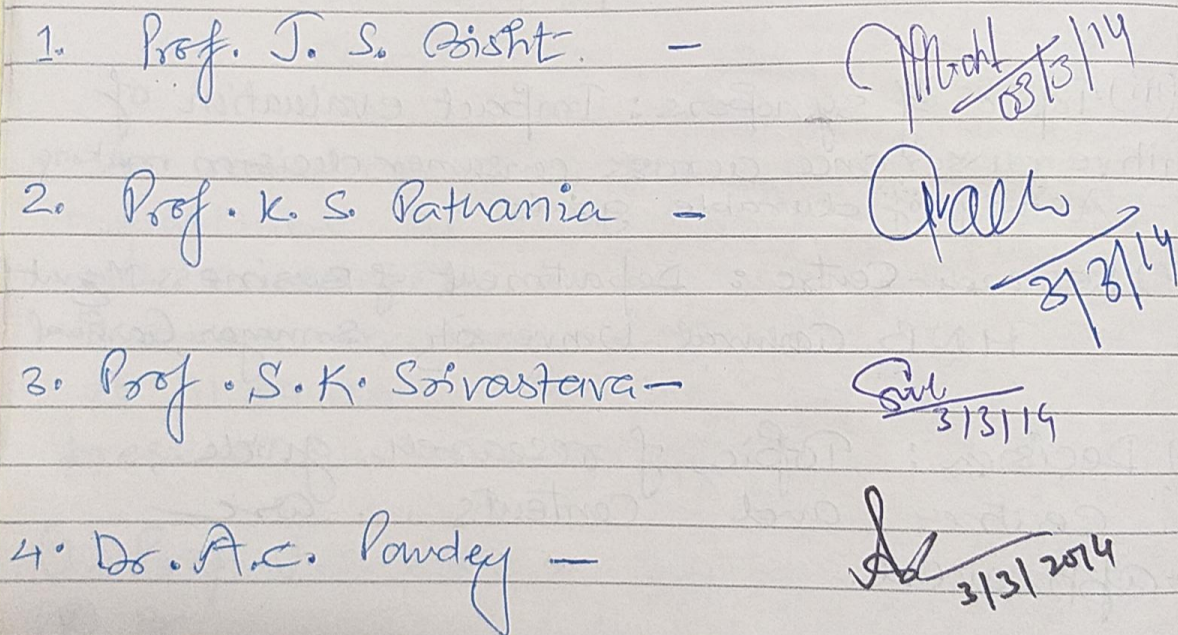 1. Prof. J. S. Bisht. - 03/3/14
2. Prof. K. S. Pathania - 3/3/14
3. Prof. S. K. Srivastava - 3/3/14
4. Dr. A.C. Pandey - 3/3/2014